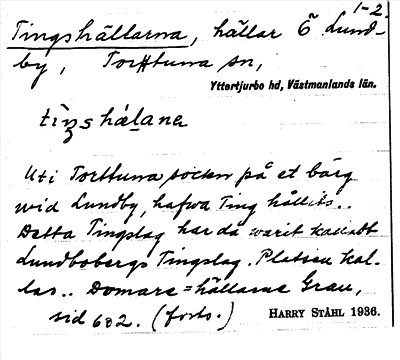 1-2.
Tingshällarna, hällar Ö Lund-
by, Torttuna sn,
Yttertjurbo hd, Västmanlands län.
tìŋshäḷana
Uti Torttuna socken på et bärg
wid Lundby, hafwa Ting hållits..
Detta Tingslag har då warit kalladt
Lundbobergs Tingslag. Platsen kal-
las.. Domare=hällarne Grau,
sid 682. (forts.)
HARRY STÅHL 1936.